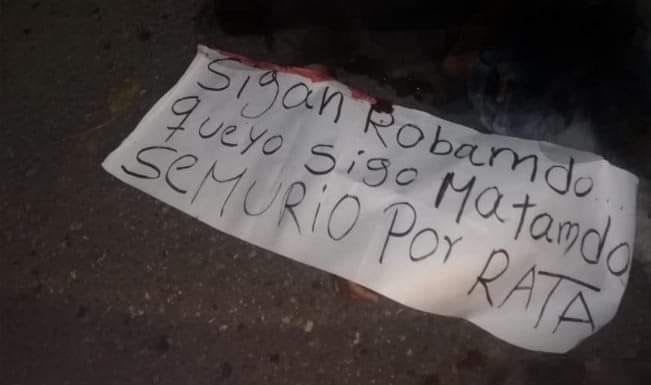 Sigan Robamdo...
queyo sigo Matamdo
SeMURiO Por RATA